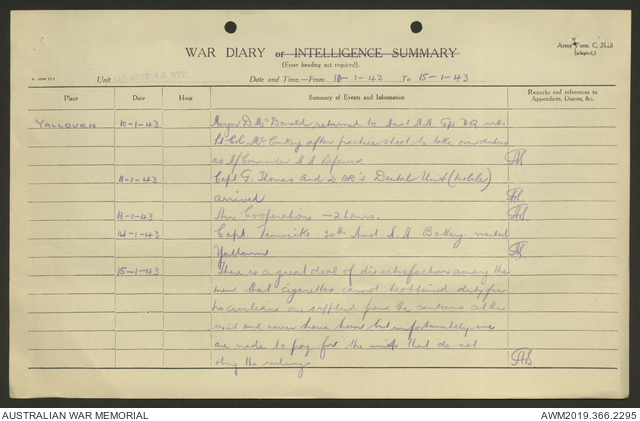 WAR DIARY or INTELLIGENCE SUMMARY
(Erase heading not required).
Army Form, C. 2118
(adapted.)
Unit
Date and Time.—From 10-1-43 To 15-1-43
Place Date Hour Summary of Events and Information Remarks and references to Appendices, Diaries, &c.
YALLOURN 10-1-43 Major D McDonald returned to Aust A.A. Gp. HQ with
Lt-Col McConkey after practice shoot to take over duties
as A/Commander A A Defences
11-1-43 Capt G. Thomas and OR's Dental Unit (mobile)
arrived
13-1-43 Air Cooperation — 2 hours.
14-1-43 Capt. Aust A.A Battery visited
Yallourn
15-1-43 There is a great deal of dissatisfaction among the
men that cigarettes cannot be obtained duty free
No civilians are supplied from the canteens at this
unit and never have been but unfortunately we
are made to pay for the units that do not
obey the rulings
AUSTRALIAN WAR MEMORIAL
AWM2019.366.2295